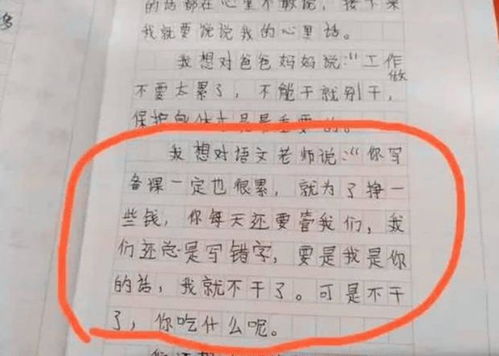 的话都在心里不敢说，接下来
我就要说说我的心里话。
我想对爸爸妈妈说："工作
不要太累了，不能干就别干，
保护身体才是最重要的。
我想对语文老师说："你写
备课一定也很累，就为了挣一
些钱，你每天还要管我们，我
们还总是写错字，要是我是你
的话，我就不干了。可是不干
了，你吃什么呢。